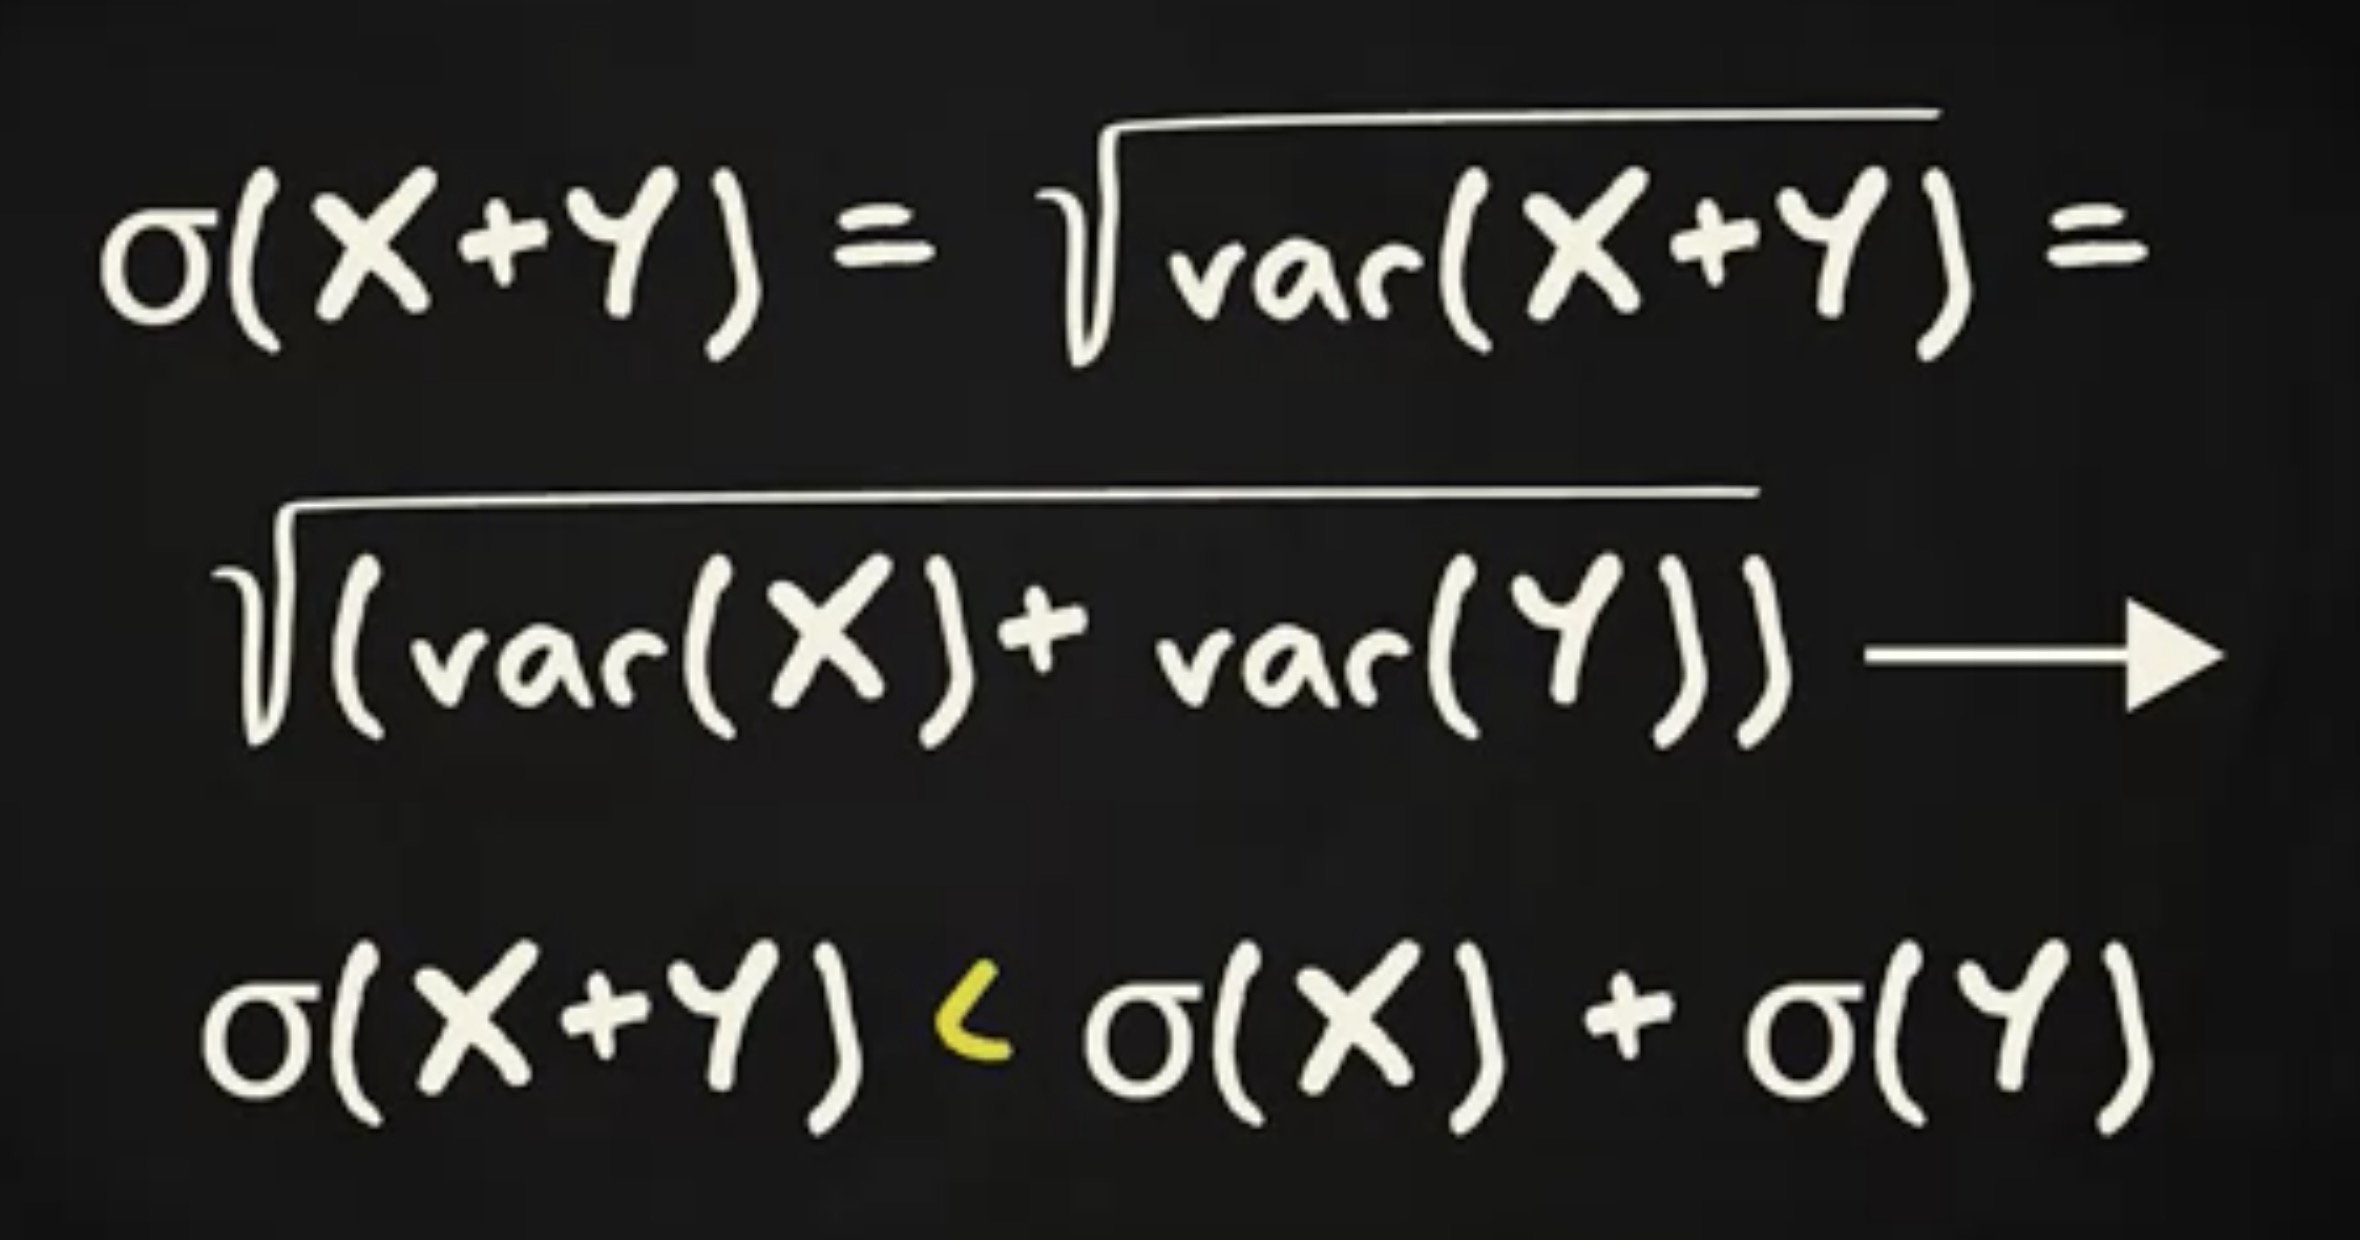 σ(X+Y) = √var(X+Y) =
√(var(X)+ var(Y)) →
σ(X+Y) < σ(X) + σ(Y)